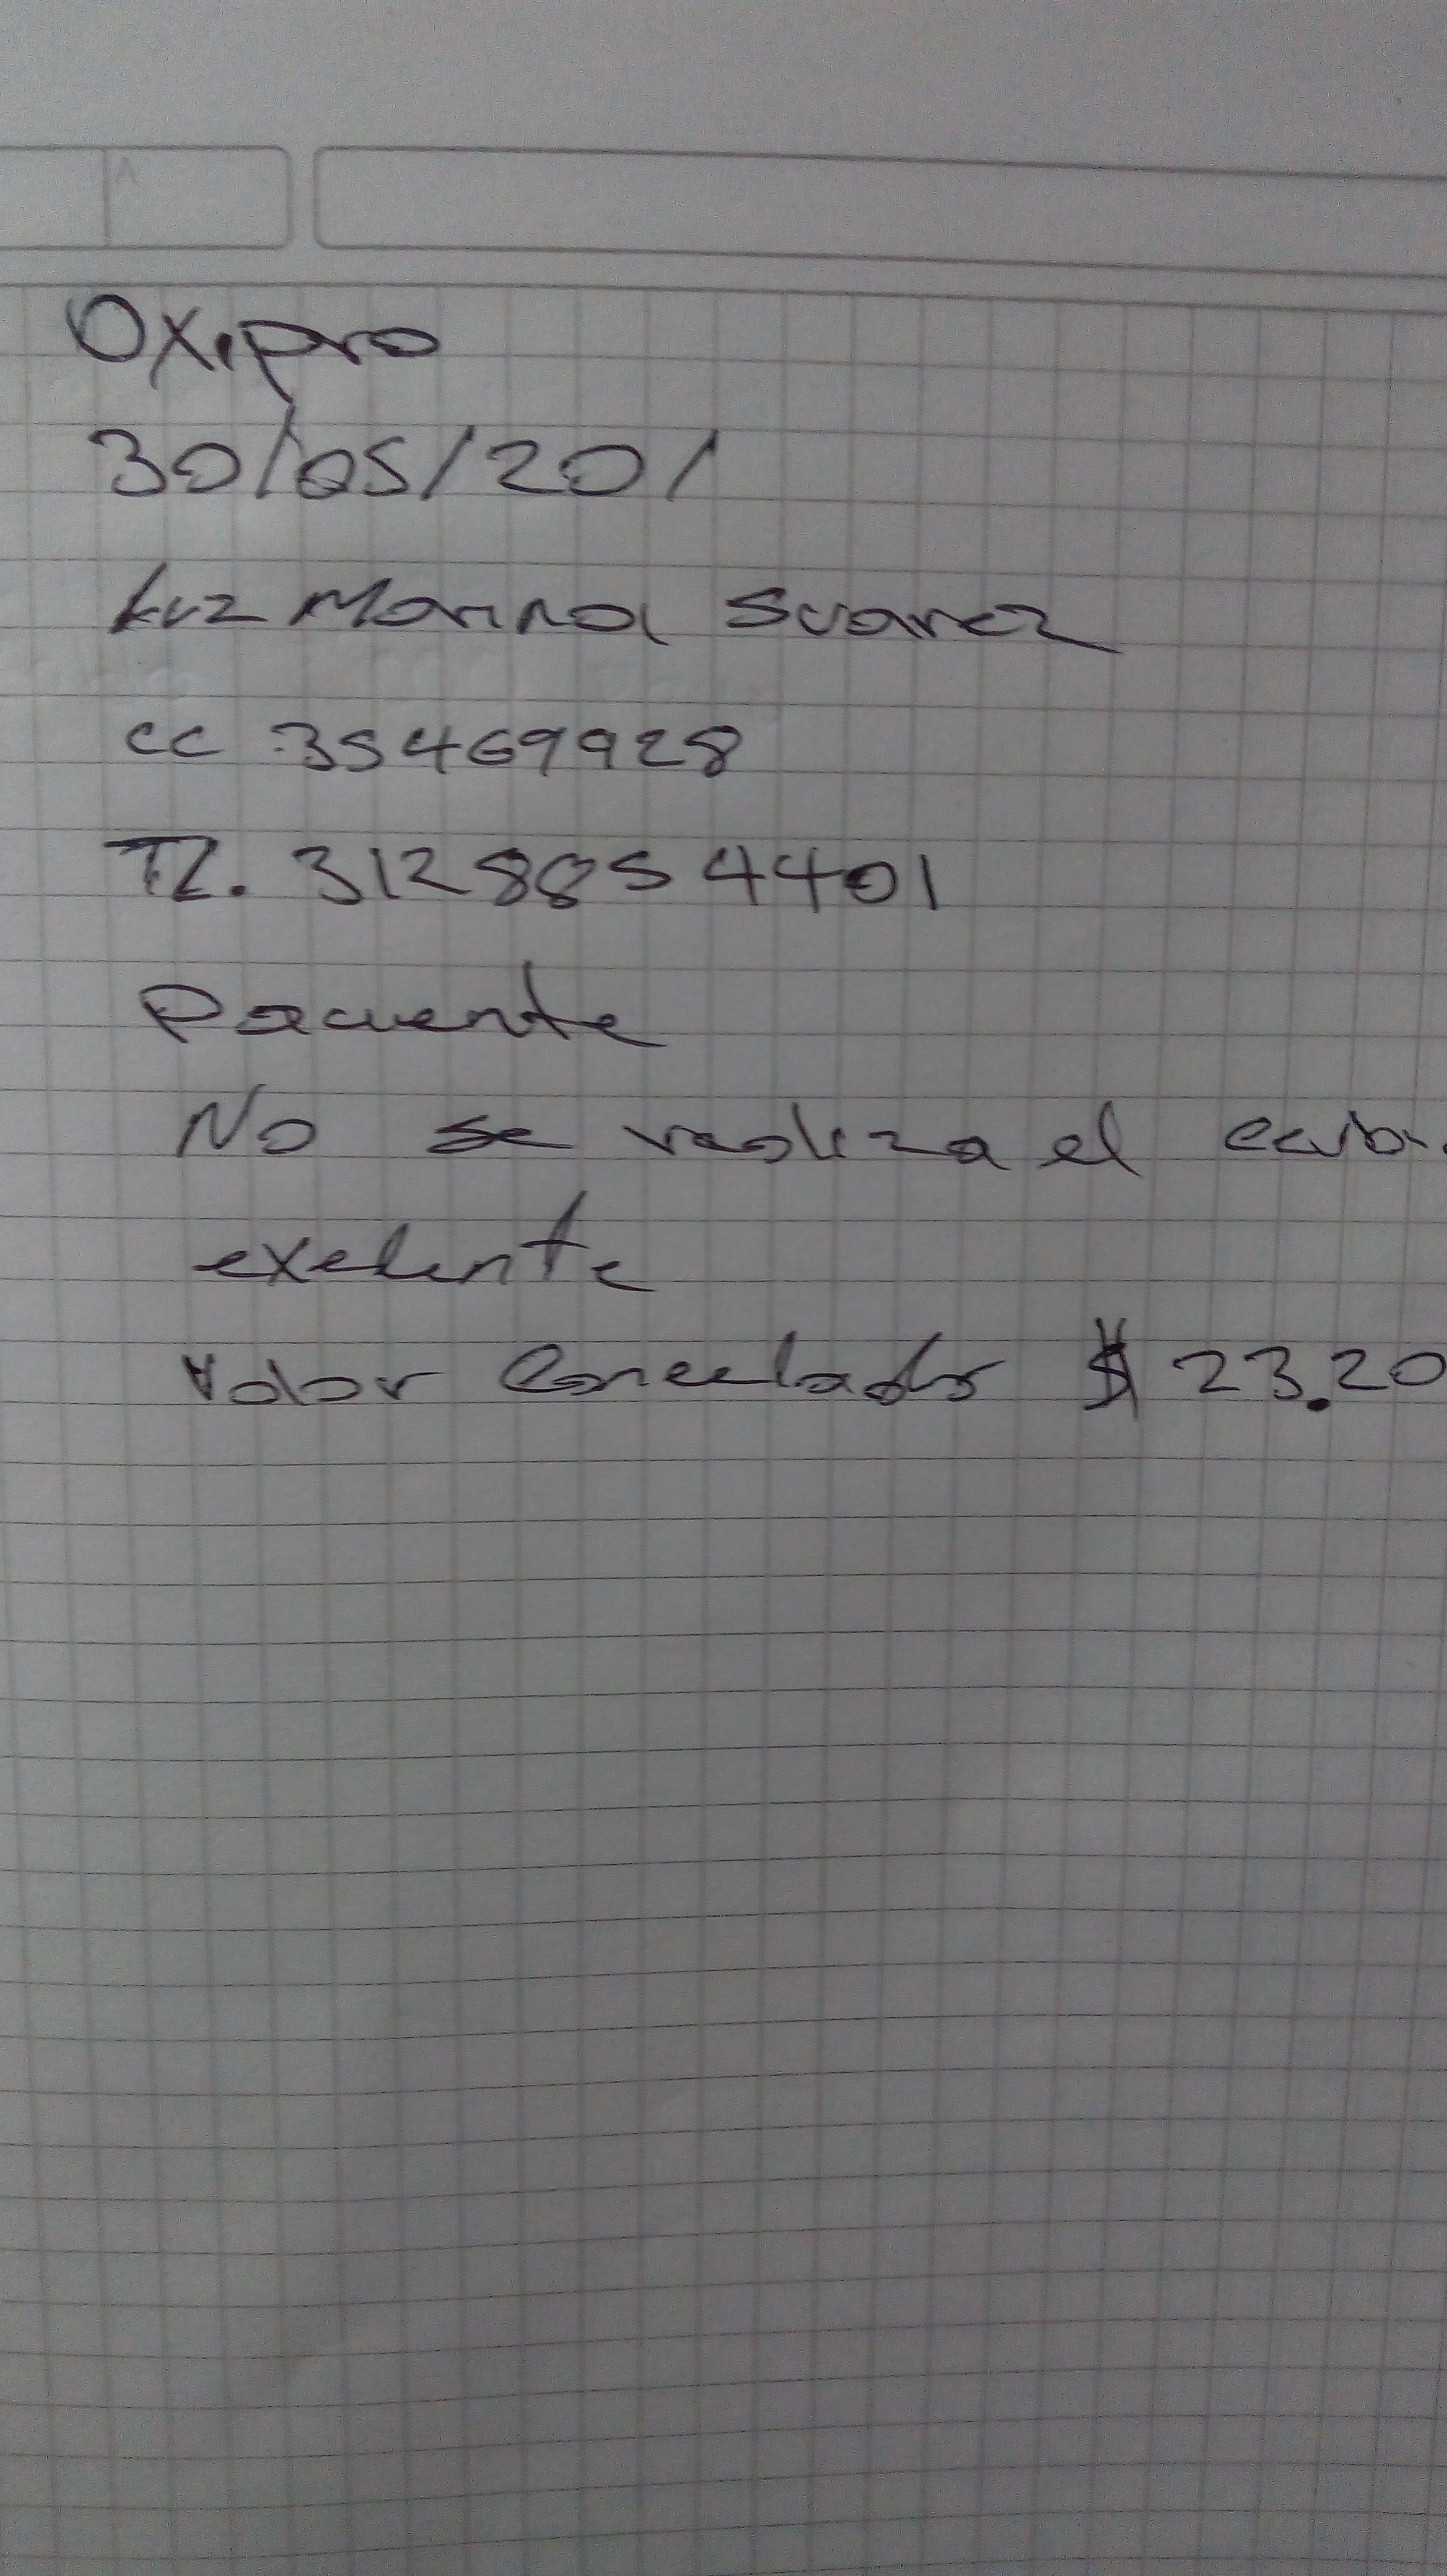 Oxipro
30/05/201
Luz Marina Suarez
CC 35469928
TL. 3128854401
Paciente
No se realiza el
exelente
Valor Cancelado $ 23.20